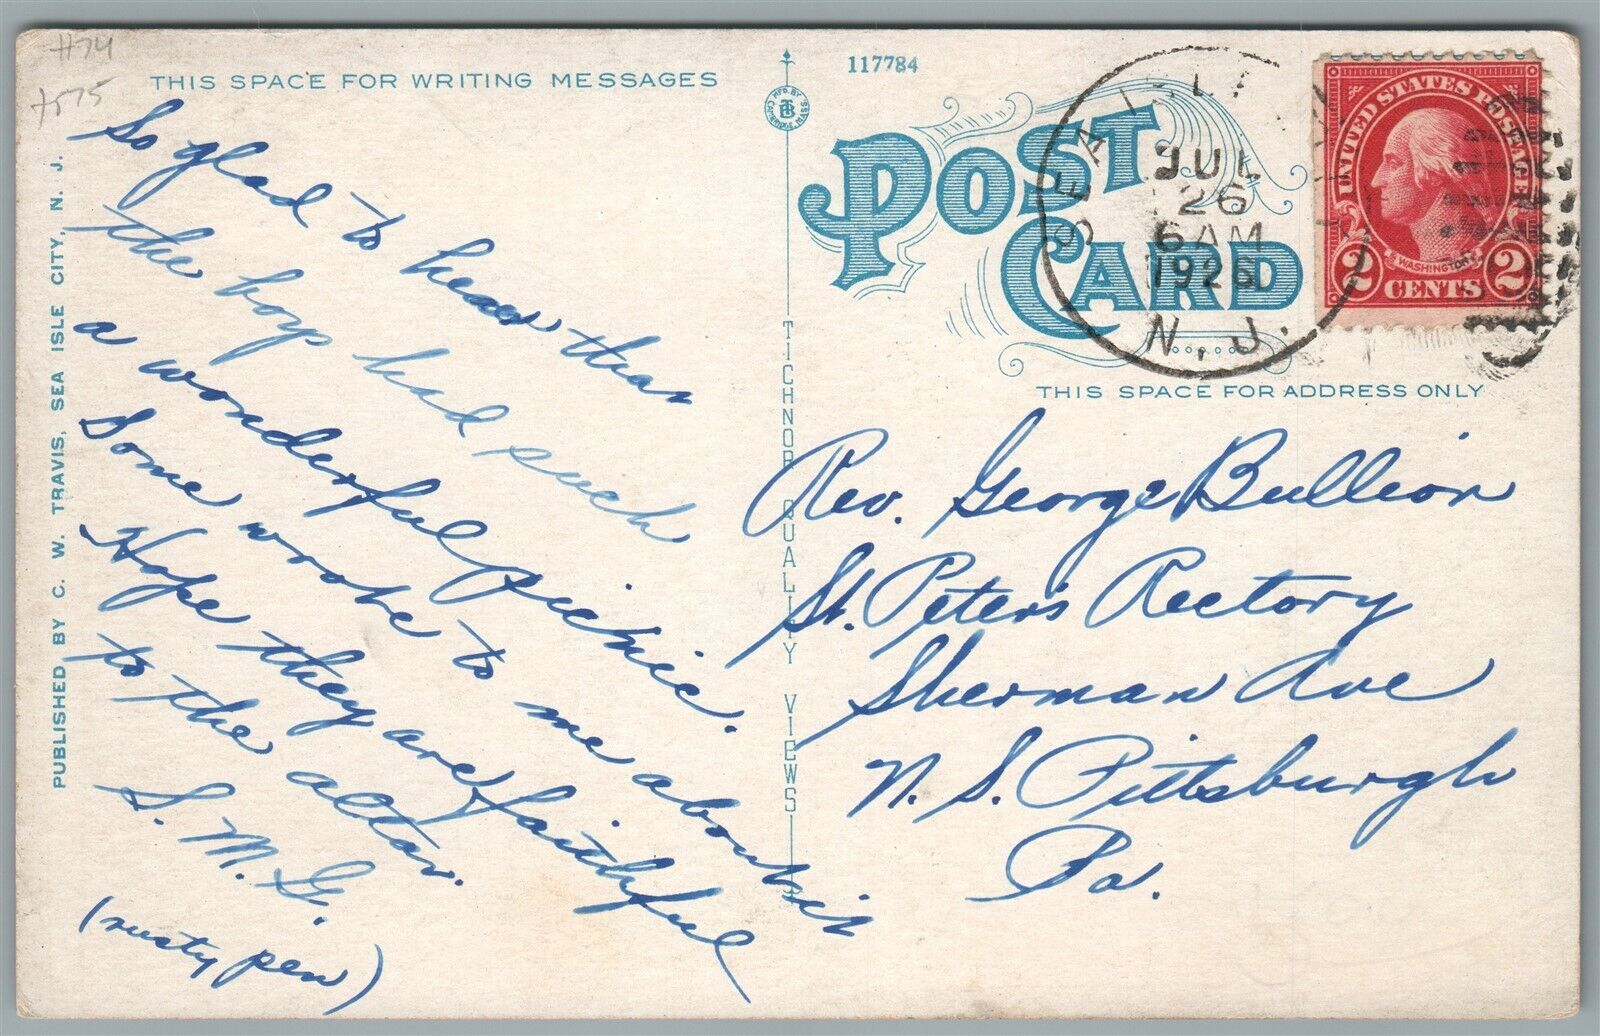 #74
THIS SPACE FOR WRITING MESSAGES
PUBLISHED BY C. W. TRAVIS, SEA ISLE CITY, N. J.
So glad to hear that
the boys had such
a wonderful picnic.
Some wrote to me about it
Hope they are faithful
to the altar.
S. M. G.
(rusty pen)
MFD. BY
TB
CAMBRIDGE, MASS.
TICHNOR QUALITY VIEWS
117784
POST CARD
SEA ISLE CITY
JUL
26
6 AM
1926
N. J.
UNITED STATES POSTAGE
WASHINGTON
2 CENTS 2
THIS SPACE FOR ADDRESS ONLY
Rev. George Bullion
St. Peter's Rectory
Sherman Ave
N. S. Pittsburgh
Pa.